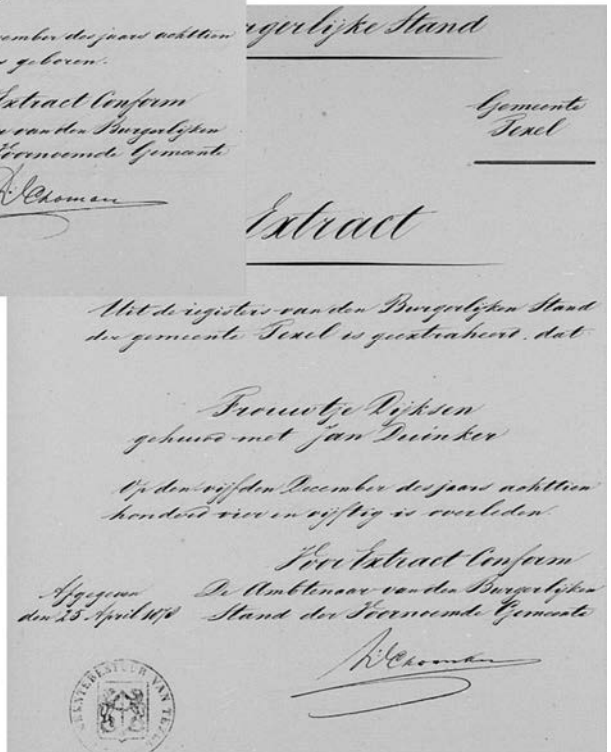 cember des jaars achttien
s geboren.
Extract Conform
r van den Burgerlijken
Voornoemde Gemeente
rgerlijke Stand
Gemeente
Texel
Extract
Uit de registers van den Burgerlijken Stand
der gemeente Texel is geextraheerd, dat
Trouwtje Dijksen
gehuwd met Jan Duinker
Op den vijfden December des jaars achttien
honderd vier en vijftig is overleden.
Voor Extract Conform
Afgegeven
den 25 April 1878
De Ambtenaar van den Burgerlijken
Stand der Voornoemde Gemeente
GEMEENTEBESTUUR VAN TEXEL